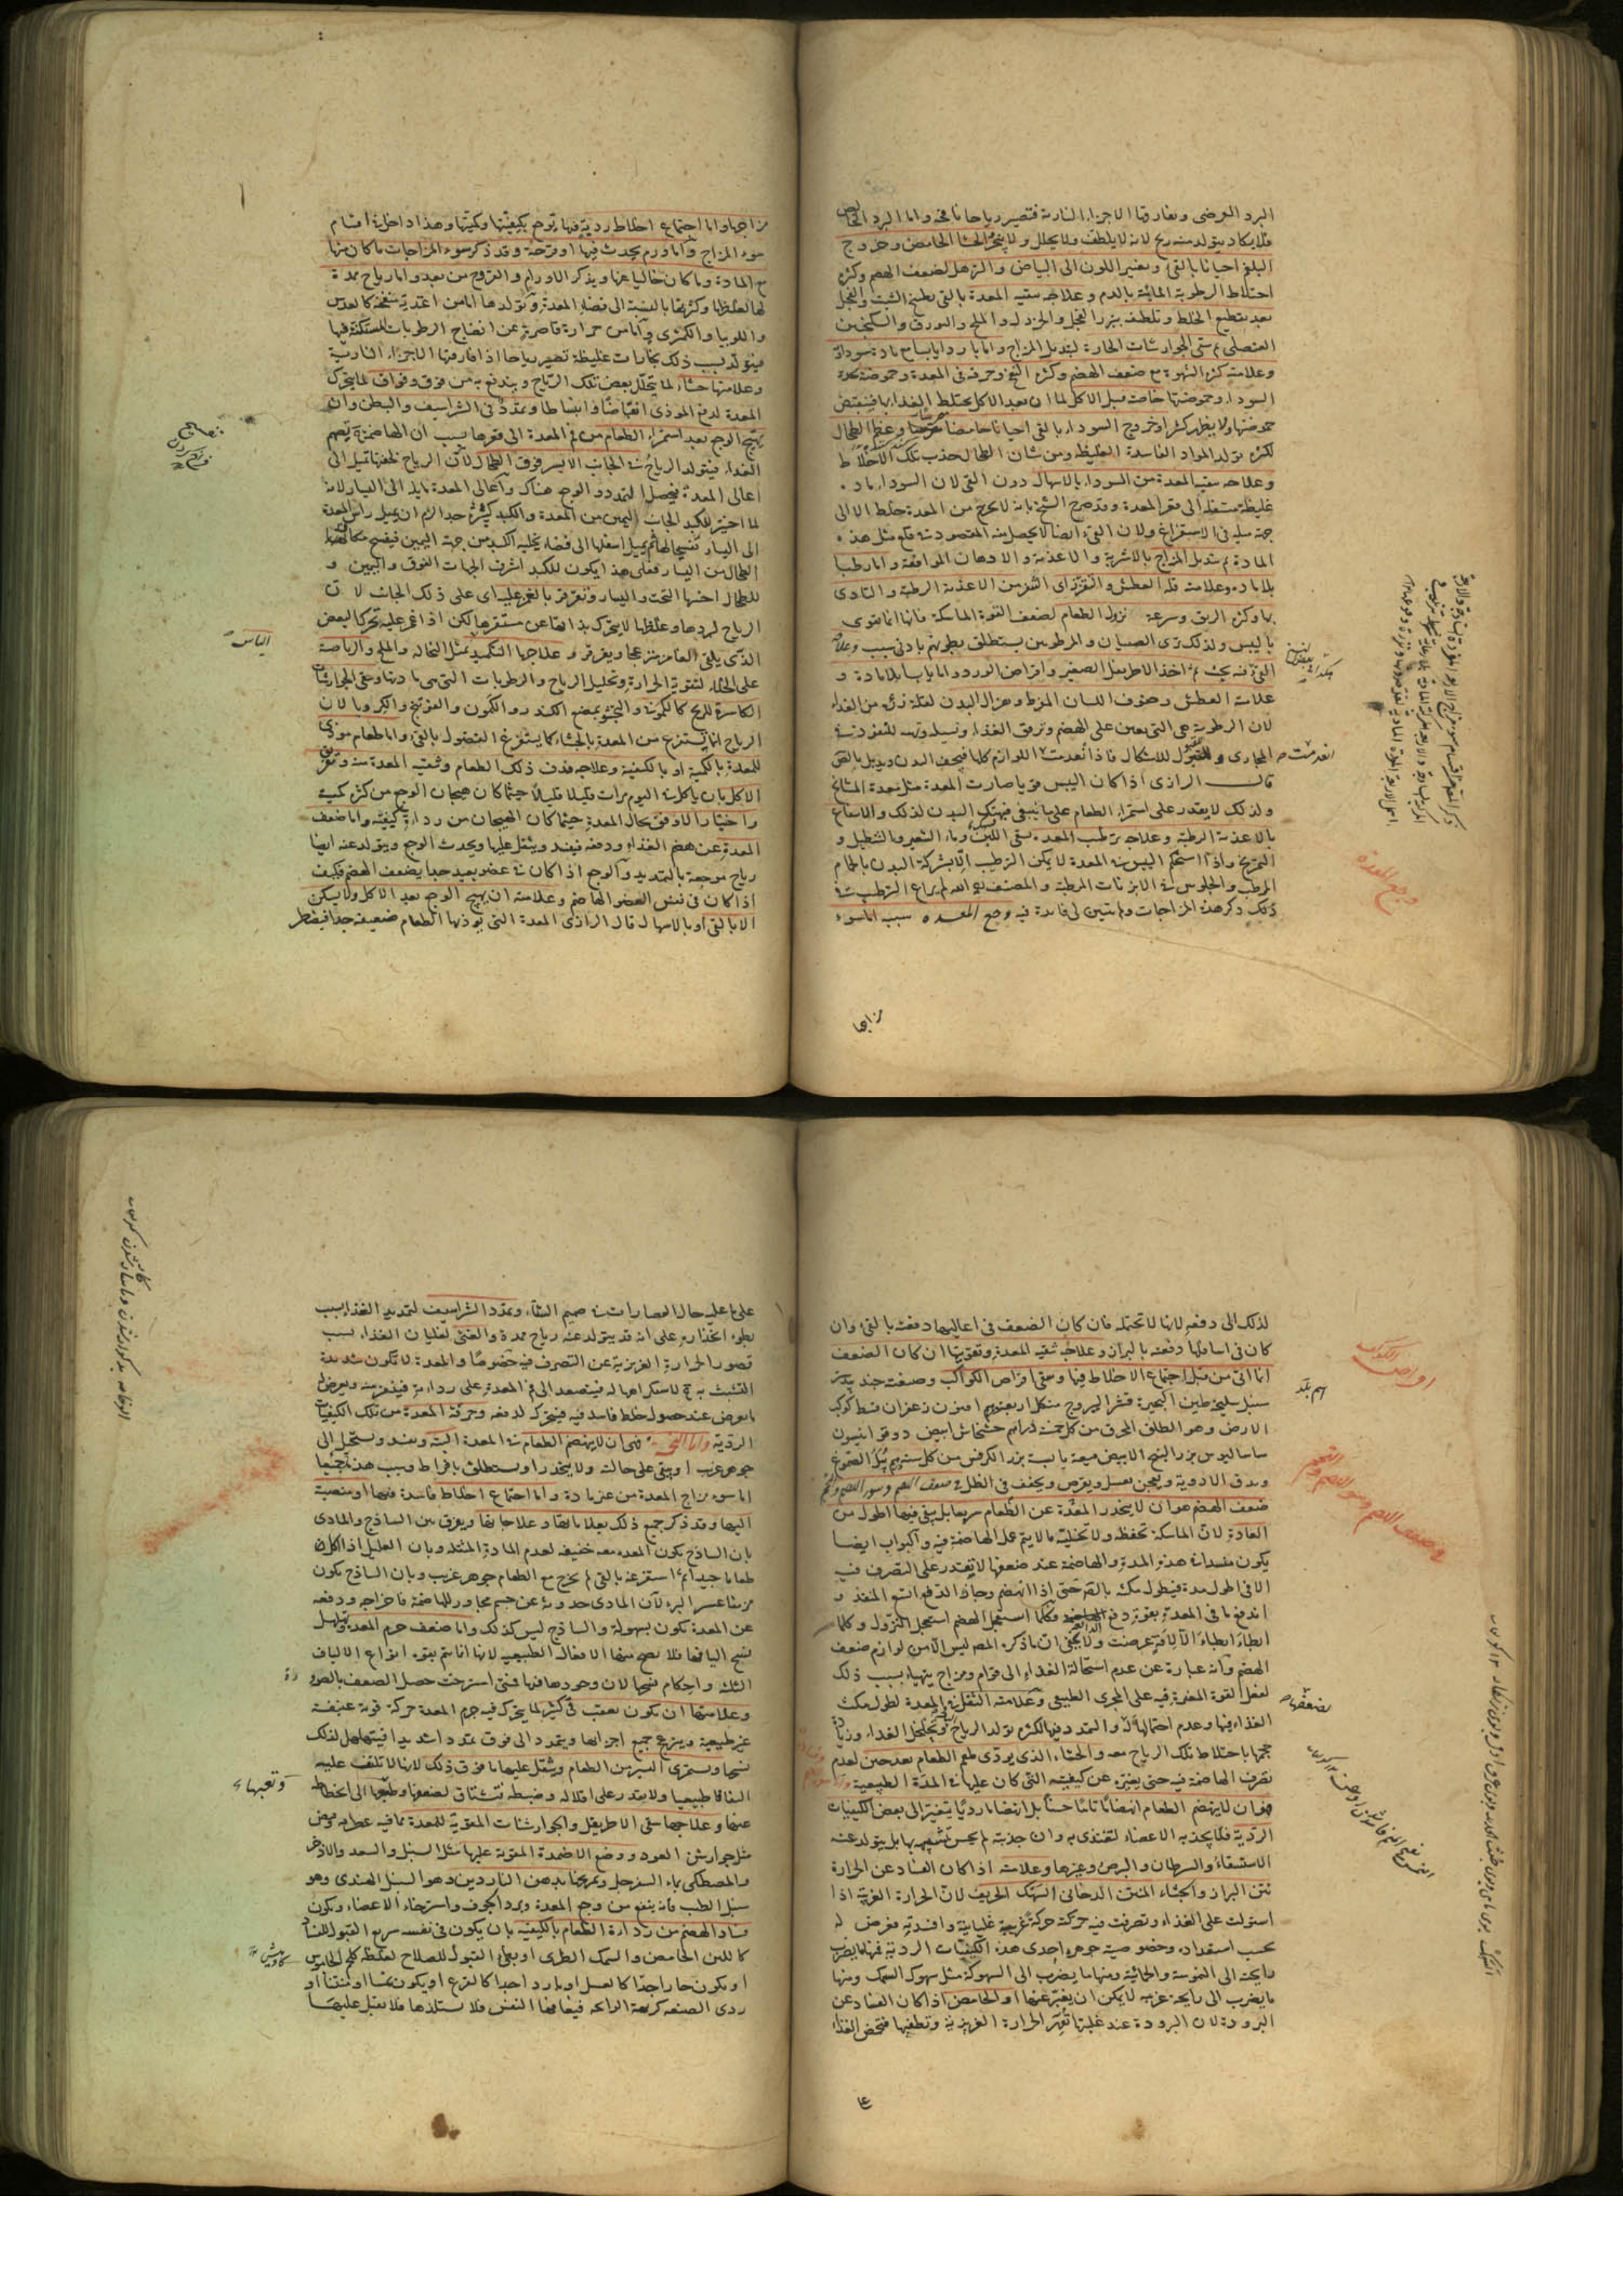 البرد العرضى ويفارقها الاجزاء النارية فتصير رياحا نافخة واما البرد الخالص
فلا يكاد يتولد منه ريح لانه لا يلطف ولا يحلل ولا يبخر والجشا الحامض وخروج
البلغم احيانا بالقئ وتغير اللون الى البياض والترهل لضعف الهضم وكثرة
اختلاط الرطوبة المائية بالدم وعلاجه تنقيه المعدة بالقئ بطبخ الشبت والفجل
بعد تقطيع الخلط وتلطيفه ببزر الفجل والخردل والملح والبورق والسكنجبين
العنصلى ثم سقى الجوارشات الحارة لتبديل المزاج واما باردا يابسا مع مادة سوداوية
وعلامته كثرة الشهوة مع ضعف الهضم وكثرة النفخ وحرقة فى المعدة وحموضة لحدة
السوداء وحموضتها خاصة قبل الاكل لما ان بعد الاكل يختلط الغذاء بها فينقص
حموضتها ولا يظهر كثيرا وخروج السوداء بالقئ احيانا حامضا وعظم الطحال
لكثرة تولد المواد الفاسدة الغليظة ومن شان الطحال جذب تلك الاخلاط
وعلاجه تنقيه المعدة من السوداء بالاسهال دون القئ لان السوداء مادة
غليظة مستفلة الى قعر المعدة وقد صرح الشيخ بانه لا يخرج من المعدة خلط الا الى
جهة ميله فى الاستفراغ ولان القئ ايضا لا يحصل منه المقصود من قلع مثل هذه
المادة ثم تبديل المزاج بالاشربة والاغذية والادهان الموافقة واما رطبا
بلا مادة وعلامته قلة العطش والتقزز اى التنفر من الاغذية الرطبة والتاذى
بها وكثرة الريق وسرعة نزول الطعام لضعف القوة الماسكة فانها انما تقوى
باليبس ولذلك ترى الصبيان والمرطوبين يستطلق بطونهم بادنى سبب وعلاجه
القئ ثم اخذ الاطريفل الصغير واقراص الورد واما يابسا بلا مادة و
علامته العطش وجفوف اللسان المفرط وهزال البدن لقلة رزئه من الغذاء
لان الرطوبة هى التى تعين على الهضم وترقق الغذاء وتسيله وتهيئه للنفوذ فى
المجارى والقبول للاشكال فاذا انعدمت اللوازم كلها فيجف البدن ويذبل بالضرورة
قال الرازى اذا كان اليبس قويا صارت المعدة مثل معدة المشائخ
ولذلك لا يقدر على استمراء الطعام على ما ينبغى فينهك البدن لذلك والانتفاع
بالاغذية الرطبة وعلاجه ترطيب المعدة بسقى اللبن وماء الشعير والتنطيل و
التمريخ واذا استحكم اليبس فى المعدة لا يمكن الترطيب الا بشركة البدن بالحمام
المرطب والجلوس فى الابزنات المرطبة والمصنف رحمه الله لم يراع الترتيب فى
ذكر هذه المزاجات ولم يتبين لى فائدة فيه وجع المعدة سببه اما سوء
مزاجها
انعدمت
وجع المعدة
مزاجها واما اجتماع اخلاط ردية فيها توجع بكيفيتها وكميتها وهذا داخل فى اقسام
سوء المزاج واما ورم يحدث فيها او قرحة وقد ذكر سوء المزاجات ما كان منها
مع المادة وما كان خاليا عنها ويذكر الاورام والقروح من بعد واما رياح ممددة
لها لغلظها وكثرتها بالنسبة الى فضاء المعدة وتولدها اما من اغذية منفخة كالعدس
واللوبيا والكمثرى واما من حرارة قاصرة عن انضاج الرطوبات المستكنة فيها
فيتولد بسبب ذلك بخارات غليظة تصير رياحا اذا فارقها الاجزاء النارية
وعلامتها جشاء لما يتحلل بعض تلك الرياح ويندفع به من فوق وفواق لما يتحرك
المعدة لدفع الموذى انقباضا وانبساطا وتمدد فى الشراسيف والبطن وان
يهيج الوجع بعد استمراء الطعام من فم المعدة الى قعرها بسبب ان الهاضمة تهضم
الغذاء فيتولد الرياح فى الجانب الايسر فوق الطحال لان الرياح لخفتها تميل الى
اعالى المعدة فيحصل التمدد والوجع هناك واعالى المعدة مايلة الى اليسار لانه
لما اختير للكبد الجانب اليمين من المعدة والكبد كبيرة جدا لزم ان يميل راس المعدة
الى اليسار تفسيحا لها ثم يميل اسفلها الى فضاء يخليه الكبد من جهة اليمين فيفسح مكان
الطحال من اليسار فعلى هذا يكون للكبد اشرف الجهات الفوق واليمين و
للطحال اخسها التحت واليسار وتقرقر بالغمز عليه اى على ذلك الجانب لان
الرياح لبردها وغلظها لا يتحرك بذاتها عن مستقرها لكن اذا غمز عليه تحرك البعض
الذى يلقى الغامز منزعجا ويقرقر وعلاجها التكميد بمثل النخالة والملح والرياضة
على الخلاء لتقوية الحرارة وتحليل الرياح والرطوبات التى هى مادتها وسقى الجوارشات
الكاسرة للريح كالكمونى والتجشؤ بمضغ الكندر والكمون والفوتنج والكرويا لان
الرياح انما يستفرغ من المعدة بالجشاء كما يستفرغ الفضول بالقئ واما طعام موذى
للمعدة بالكمية او بالكيفية وعلاجه قذف ذلك الطعام وتنقية المعدة منه وتفريق
الاكل بان ياكل فى اليوم مرات قليلا قليلا حيثما كان هيجان الوجع من كثرة كميته
واختيار الاوفق بحال المعدة حيثما كان الهيجان من رداءة كيفيته واما ضعف
المعدة عن هضم الغذاء ودفعه فيفسد ويثقل عليها ويحدث الوجع ويتولد عنه ايضا
رياح موجعة بالتمديد والوجع اذا كان فى عضو بعيد جدا يضعف الهضم فكيف
اذا كان فى نفس العضو الهاضم وعلامته ان يهيج الوجع بعد الاكل ولا يسكن
الا بالقئ او بالاسهال قال الرازى المعدة التى يوذيها الطعام ضعيفة جدا فيضطر
لذلك الى دفعه لانها لا تحتمله فان كان الضعف فى اعاليها دفعته بالقئ وان
كان فى اسافلها دفعته بالبراز وعلاجه تنقيه المعدة وتقويتها ان كان الضعف
انما اتى من قبل اجتماع الاخلاط فيها وسقى اقراص الكواكب وصنعته جند بيدستر
سنبل سليخة طين البحيرة قشر اليبروح من كل اربعة دراهم افيون زعفران قسط كوكب
الارض وهو الطلق المحرق من كل خمسة دراهم خشخاش ابيض دوقو انيسون
ساساليوس بزر البنج الابيض ميعة يابسة بزر الكرفس من كل ستة دراهم يبل الصموغ
ويدق الادوية ويعجن بعسل ويقرص ويجفف فى الظل ضعف الهضم وسوء الهضم والتخم
ضعف الهضم هو ان لا ينحدر المغذة عن الطعام سريعا بل يبقى فيها اطول من
العادة لان الماسكة تحفظه ولا تخليه ما لا يتم عمل الهاضمة فيه والبواب ايضا
يكون منسدا فى هذه المدة والهاضمة عند ضعفها لا يقتدر على التصرف فيه
الا فى اطول مدة فيطول مكثه بالضرورة حتى اذا انهضم وحان الدفع اتسع المنفذ و
اندفع ما فى المعدة بقوة دفع فكلما استعجل الهضم استعجل النزول وكلما
ابطأ ابطأ الا لافة عرضت ولا يخفى ان ما ذكره المص ليس الا من لوازم ضعف
الهضم وانه عبارة عن عدم استحالة الغذاء الى قوام ومزاج يتهيأ بسبب ذلك
لفعل القوة المغيرة فيه على المجرى الطبيعى وعلامته الثقل فى المعدة لطول مكث
الغذاء فيها وعدم احتمالها له والتمدد فيها لكثرة تولد الرياح وتخلخل الغذاء وزيادة
حجمها باختلاط تلك الرياح معه والجشاء الذى يودى طعم الطعام بعد حين لعدم
تصرف الهاضمة فيه حتى يغيره عن كيفيته التى كان عليها فى المدة الطبيعية
فهو ان لا ينهضم الطعام انهضاما تاما حسنا بل انهضاما رديا يتغير الى بعض الكيفيات
الردية فلا يجذبه الاعضاء لتغتذى به وان جذبته لم يحسن تشبهه بها بل يتولد عنه
الاستسقاء والسرطان والبرص وغيرها وعلامته اذا كان الفساد عن الحرارة
نتن البراز والجشاء المنتن الدخانى السهك الحريف لان الحرارة الغريبة اذا
استولت على الغذاء وتصرفت فيه حركته حركة غريبة غليانية وافسدته فعرض له
بحسب استعداده وخصوصية جوهره احدى هذه الكيفيات الردية فمنها ما يضرب
رايحته الى النموسة والحمائية ومنها ما يضرب الى السهوكة مثل سهوك السمك ومنها
ما يضرب الى رايحة غريبة لا يمكن ان يعبر عنها او الحامض اذا كان الفساد عن
البرودة لان البرودة عند غلبتها تقهر الحرارة الغريزية وتطفيها فتحمض الغذاء
على
اقراص الكوكب
ضعف الهضم وسوء الهضم والتخم
على ما عليه حال العصارات فى صميم الشتاء وتمدد الشراسيف لتمديد الغذاء بسبب
بطوء انحداره على انه قد يتولد عنه رياح ممددة والغثى لغليان الغذاء بسبب
قصور الحرارة الغريزية عن التصرف فيه خصوصا والمعدة لا تكون شديدة
التشبث به لاستكراهها له فيتصعد الى فم المعدة على رداءته فينفر منه ويعرض له
ما يعرض عند حصول خلط فاسد فيه فيتحرك لدفعه وحرقة المعدة من تلك الكيفيات
الردية واما التخمة فهى ان لا ينهضم الطعام فى المعدة البتة ويفسد ويستحيل الى
جوهر غريب او يبقى على حالته ولا ينحدر او يستطلق بافراط وسبب هذه جميعها
اما سوء مزاج المعدة من غير مادة واما اجتماع اخلاط فاسدة فيها او منصبة
اليها وقد ذكر جميع ذلك بعلاماتها وعلاجاتها ويفرق بين الساذج والمادى
بان الساذج يكون المعدة معه خفيفة لعدم المادة المثقلة وبان العليل اذا اكل
طعاما جيدا ثم استفرغه بالقئ لم يخرج مع الطعام جوهر غريب وبان الساذج يكون
مزمنا عسر البرء لان المادى حدوثه عن جسم مجاور للهاضمة فاخراجه ودفعه
عن المعدة يكون بسهولة والساذج ليس كذلك واما ضعف جرم المعدة وتهلهل
نسج اليافها فلا يصح منها الافعال الطبيعية لانها انما تتم بقوة انواع الالياف
الثلثة واحكام نسجها لان وجودها فيها فمتى استرخت حصل الضعف بالضرورة
وعلامتها ان يكون يعقب قئ كثير لما يتحرك فيه جرم المعدة حركة قوية عنيفة
غير طبيعية وينزعج جميع اجزائها ويتمدد الى فوق تمددا شديدا فيتهلهل لذلك
نسجها ويستمرى اليسير من الطعام ويثقل عليها ما فوق ذلك لانها لا تلتف عليه
التفافا طبيعيا ولا يقدر على اقلاله وضبطه فتشتاق لضعفها الى انحطاطه
عنها وعلاجها سقى الاطريفل والجوارشات المقوية للمعدة مما فيه عطرية وقبض
مثل جوارش العود ووضع الاضمدة المقوية عليها مثل السنبل والسعد والاذخر
والمصطكى بماء السفرجل وتمريخها بدهن الناردين وهو السنبل الهندى وهو
سنبل الطيب فانه ينفع من وجع المعدة وبرد الجوف واسترخاء الاعضاء ويكون
فساد الهضم من رداءة الطعام بالكيفية بان يكون فى نفسه سريع القبول للفساد
كاللبن الحامض والسمك الطرى او بطئ القبول للصلاح لغلظه كلحم الجاموس
او يكون حارا جدا كالعسل او باردا جدا كالقرع او يكون عفنا او منتنا او
ردى الصنعة كريهة الرايحة فيعافها النفس فلا يستلذها فلا يقبل عليها